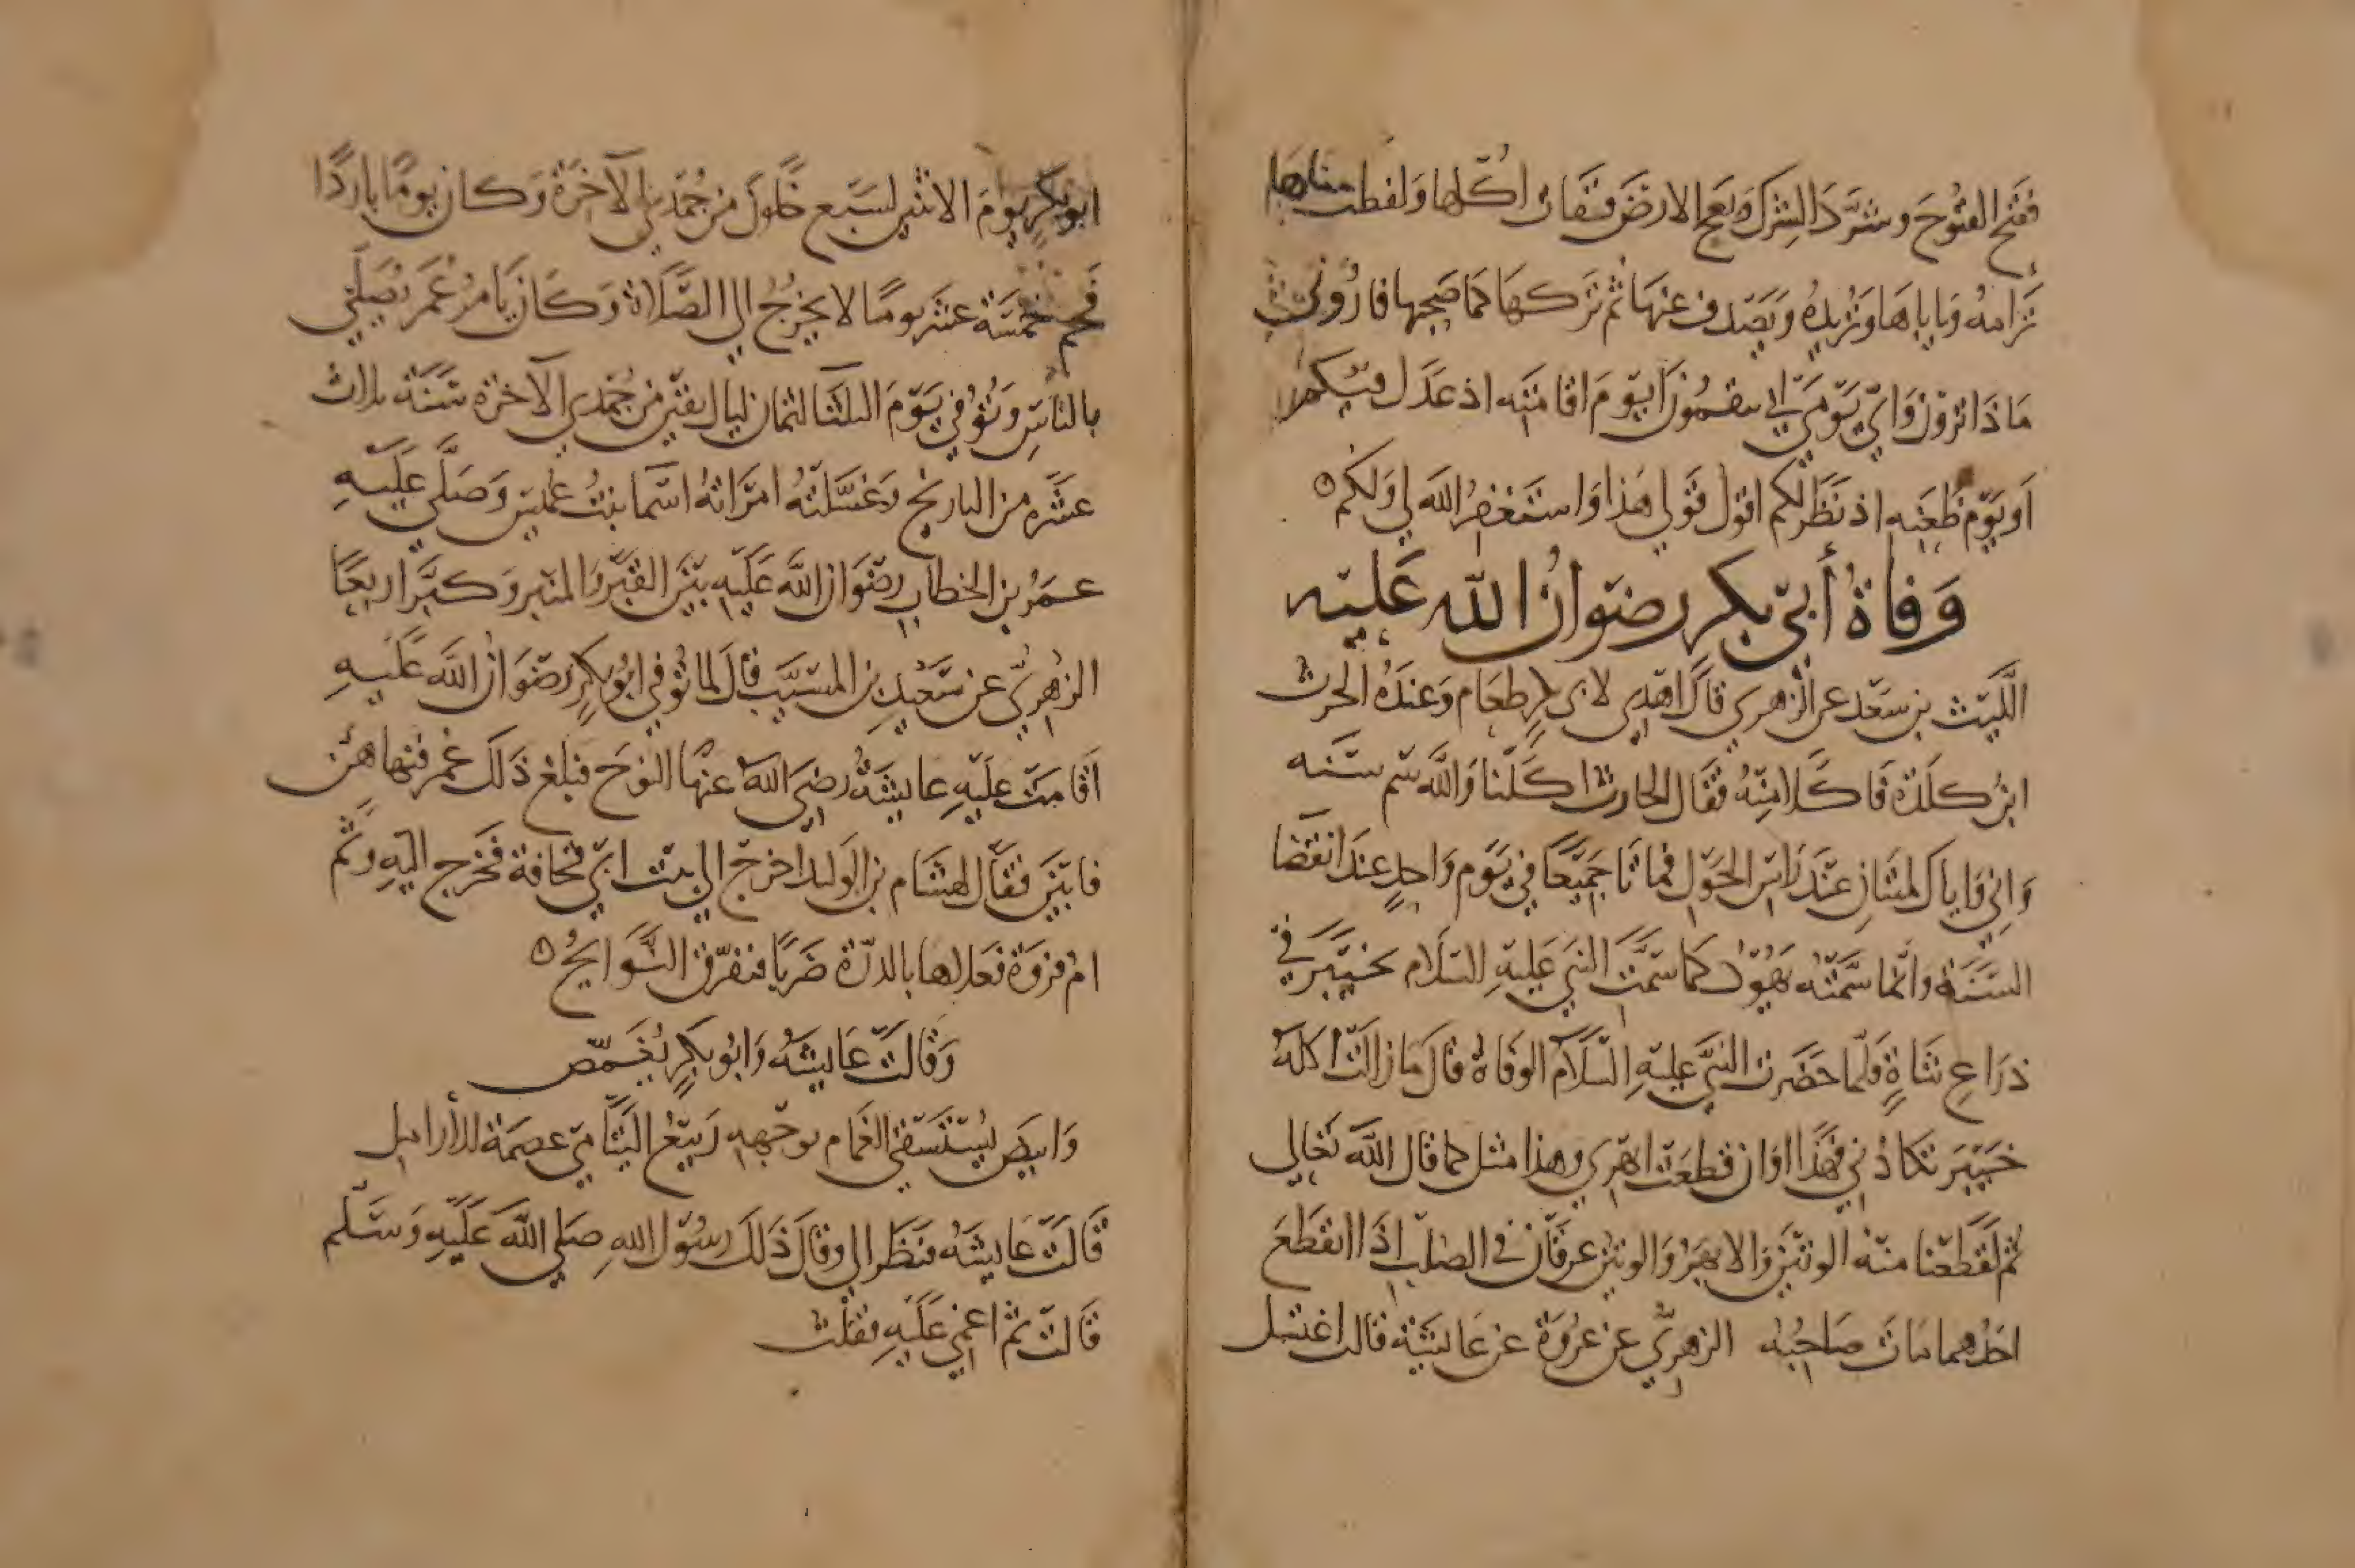 ففتح الفتوح وشرد الشرك وبعج الارض فقات اكلها ولفظت جناها
ترامه ويا باها وتريده ويصدف عنها ثم تركها كما صحبها فاروني
ماذا ترون واي يومي ابي تنقمون ايوم اقامته اذ عدل فيكم
او يوم ظعنه اذ نظر لكم اقول قولي هذا واستغفر الله لي ولكم
وفاة أبي بكر رضوان الله عليه
الليث بن سعد عن الزهري قال اهدي لابي بكر طعام وعنده الحرث
ابن كلدة فاكلا منه فقال الحارث اكلنا والله سم سنه
واني واياك لميتان عند راس الحول فماتا جميعا في يوم واحد عند انقضا
السنة وانما سمته يهود كما سمت النبي عليه السلام بخيبر في
ذراع شاة فلما حضرت النبي عليه السلام الوفاة قال ما زالت اكلة
خيبر تعاودني فهذا اوان قطعت ابهري وهذا مثل كما قال الله تعالى
ثم لقطعنا منه الوتين والابهر والوتين عرقان في الصلب اذا انقطع
احدهما مات صاحبه الزهري عن عروة عن عايشة قالت اغتسل
ابو بكر يوم الاثنين لسبع خلون من جمدي الآخرة وكان يوما باردا
فحم خمسة عشر يوما لا يخرج الى الصلاة وكان يامر عمر يصلي
بالناس وتوفي يوم الثلثا لثمان ليال بقين من جمدي الآخرة سنة ثلاث
عشره من التاريخ وغسلته امراته اسما بنت عميس وصلى عليه
عمر بن الخطاب رضوان الله عليه بين القبر والمنبر وكبر اربعا
الزهري عن سعيد بن المسيب قال لما توفي ابو بكر رضوان الله عليه
اقامت عليه عايشة رضي الله عنها النوح فبلغ ذلك عمر فنهاهن
فابين فقال لهشام بن الوليد اخرج الي بنت ابي قحافة فخرج اليه وثم
ام فروة فعلاها بالدرة ضربا فتفرق النوايح
وقالت عايشه وابو بكر يغمص
وابيض يستسقي الغمام بوجهه ربيع اليتامي عصمة للأرامل
قالت عايشه فنظر الي وقال ذلك رسول الله صلى الله عليه وسلم
قالت ثم اغمي عليه فقلت